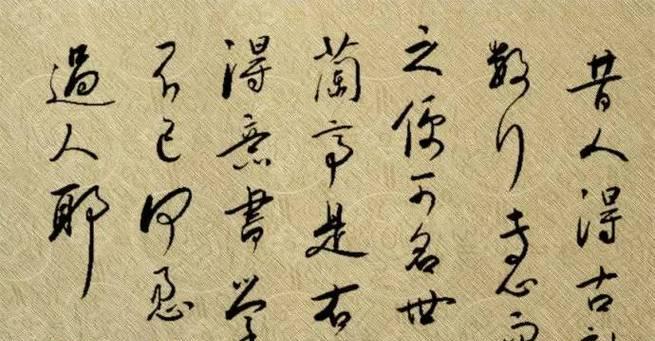 昔人得古
数行专心而
之便可名世
蘭亭是右
得意書学
不已何患
過人耶